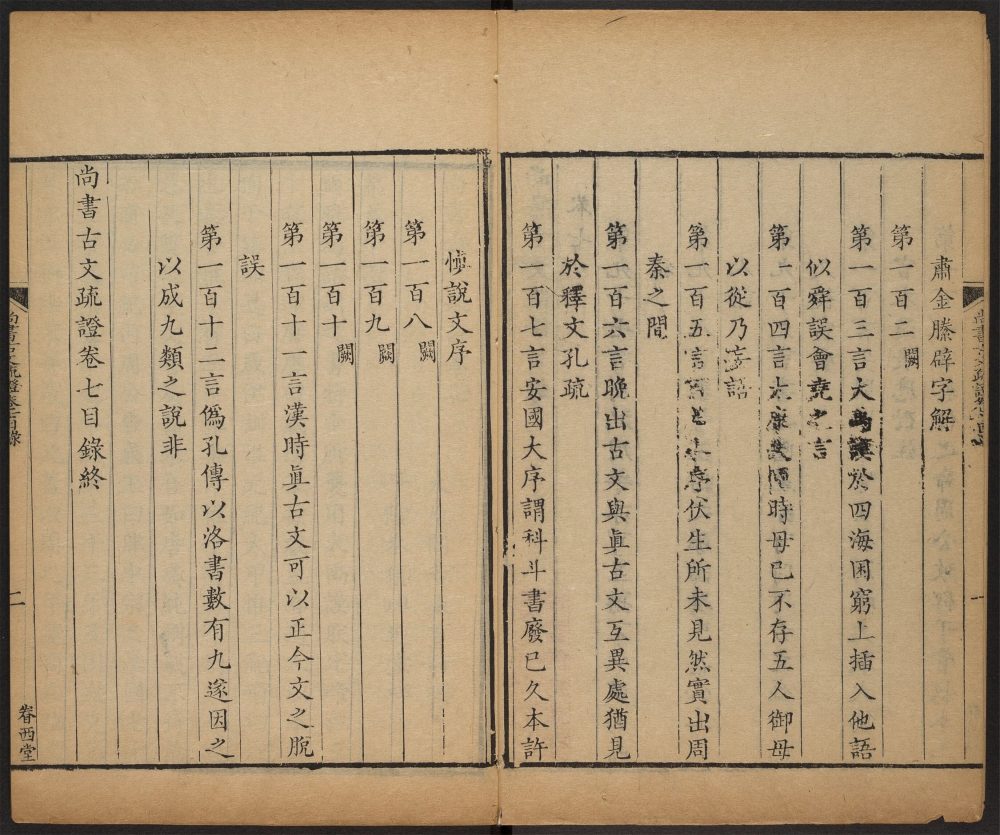 肅金縢辟字解
第一百二闕
第一百三言大禹謨於四海困窮上插入他語
似舜誤會堯之言
第一百四言太康失國時母已不存五人御母
以從乃妄語
第一百五言百篇小序伏生所未見然實出周
秦之間
第一百六言晚出古文與真古文互異處猶見
於釋文孔疏
第一百七言安國大序謂科斗書廢已久本許
愼說文序
第一百八闕
第一百九闕
第一百十闕
第一百十一言漢時眞古文可以正今文之脫
誤
第一百十二言僞孔傳以洛書數有九遂因之
以成九類之說非
尚書古文疏證卷七目錄終
尚書古文疏證卷七目錄
二
眷西堂